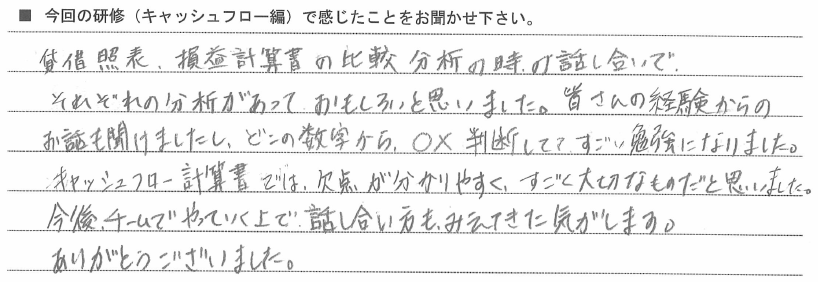 ■ 今回の研修（キャッシュフロー編）で感じたことをお聞かせ下さい。
貸借照表、損益計算書の比較分析の時の話し合いで、
それぞれの分析があって おもしろいと思いました。皆さんの経験からの
お話も聞けましたし、どこの数字から、○× 判断してて すごい勉強になりました。
キャッシュフロー計算書では、欠点が分かりやすく、すごく大切なものだと思いました。
今後、チームでやっていく上で、話し合い方も、みえてきた気がします。
ありがとうございました。